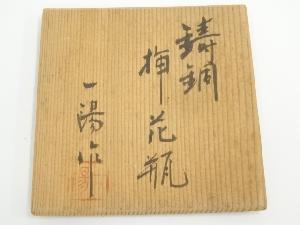 鋳銅
挿花瓶
一陽作